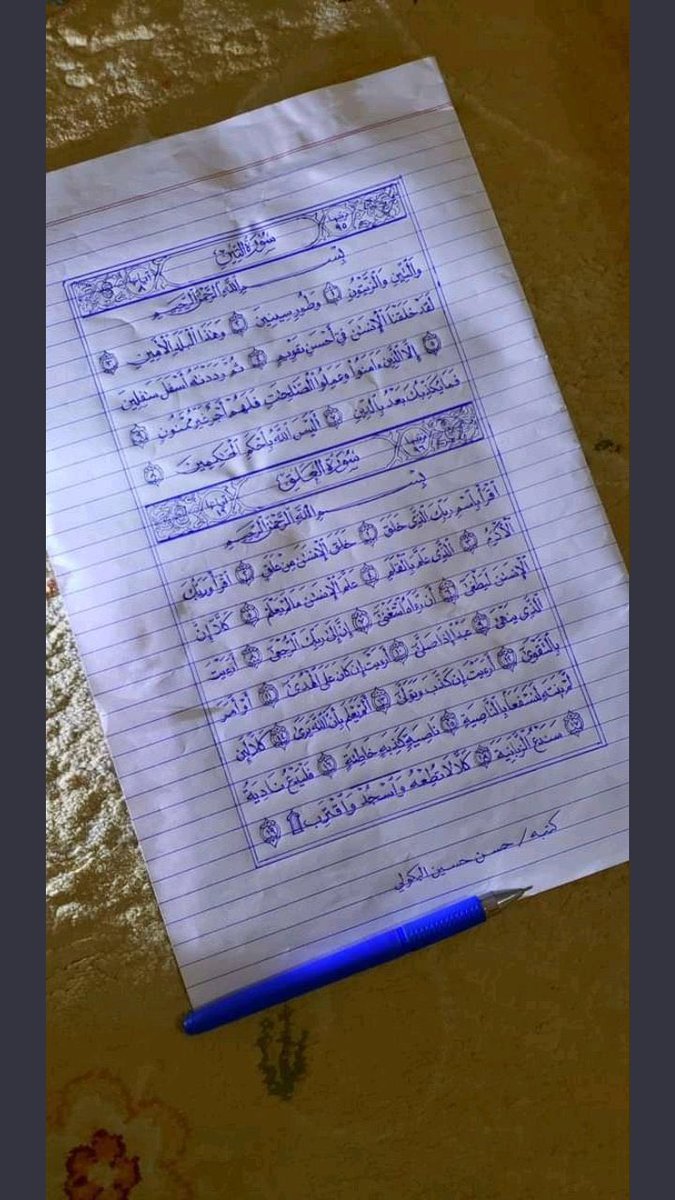 سُورَةُ التِّينِ ترتيبها ٩٥ آياتها ٨
بِسْمِ اللَّهِ الرَّحْمَٰنِ الرَّحِيمِ
وَالتِّينِ وَالزَّيْتُونِ ١ وَطُورِ سِينِينَ ٢ وَهَٰذَا الْبَلَدِ الْأَمِينِ ٣
لَقَدْ خَلَقْنَا الْإِنسَٰنَ فِي أَحْسَنِ تَقْوِيمٍ ٤ ثُمَّ رَدَدْنَٰهُ أَسْفَلَ سَٰفِلِينَ
٥ إِلَّا الَّذِينَ ءَامَنُوا وَعَمِلُوا الصَّٰلِحَٰتِ فَلَهُمْ أَجْرٌ غَيْرُ مَمْنُونٍ ٦
فَمَا يُكَذِّبُكَ بَعْدُ بِالدِّينِ ٧ أَلَيْسَ اللَّهُ بِأَحْكَمِ الْحَٰكِمِينَ ٨
سُورَةُ الْعَلَقِ ترتيبها ٩٦ آياتها ١٩
بِسْمِ اللَّهِ الرَّحْمَٰنِ الرَّحِيمِ
اقْرَأْ بِاسْمِ رَبِّكَ الَّذِي خَلَقَ ١ خَلَقَ الْإِنسَٰنَ مِنْ عَلَقٍ ٢ اقْرَأْ وَرَبُّكَ
الْأَكْرَمُ ٣ الَّذِي عَلَّمَ بِالْقَلَمِ ٤ عَلَّمَ الْإِنسَٰنَ مَا لَمْ يَعْلَمْ ٥ كَلَّا إِنَّ
الْإِنسَٰنَ لَيَطْغَىٰ ٦ أَن رَّءَاهُ اسْتَغْنَىٰ ٧ إِنَّ إِلَىٰ رَبِّكَ الرُّجْعَىٰ ٨ أَرَءَيْتَ
الَّذِي يَنْهَىٰ ٩ عَبْدًا إِذَا صَلَّىٰ ١٠ أَرَءَيْتَ إِن كَانَ عَلَى الْهُدَىٰ ١١ أَوْ أَمَرَ
بِالتَّقْوَىٰ ١٢ أَرَءَيْتَ إِن كَذَّبَ وَتَوَلَّىٰ ١٣ أَلَمْ يَعْلَم بِأَنَّ اللَّهَ يَرَىٰ ١٤ كَلَّا لَئِن
لَّمْ يَنتَهِ لَنَسْفَعًا بِالنَّاصِيَةِ ١٥ نَاصِيَةٍ كَٰذِبَةٍ خَاطِئَةٍ ١٦ فَلْيَدْعُ نَادِيَهُ
١٧ سَنَدْعُ الزَّبَانِيَةَ ١٨ كَلَّا لَا تُطِعْهُ وَاسْجُدْ وَاقْتَرِب ۩ ١٩
كتبه / حسن حسين البكولي